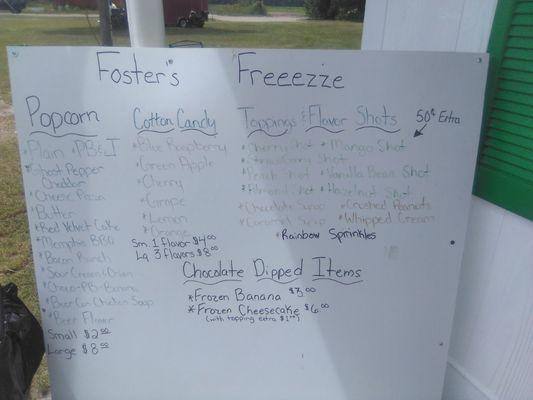 Foster's Freeezze
Popcorn
Plain *PB&J
*Ghost Pepper
Cheddar
*Cheese Pizza
*Butter
*Red Velvet Cake
*Memphis BBQ
*Bacon Ranch
*Sour Cream & Onion
*Choco-PB-Banana
*Beer Can Chicken Soup
*Beer Flavor
Small $2.00
Large $8.00
Cotton Candy
*Blue Raspberry
*Green Apple
*Cherry
*Grape
*Lemon
*Orange
Sm. 1 Flavor $4.00
Lg 3 Flavors $8.00
Toppings & Flavor Shots
50¢ Extra
*Cherry Shot *Mango Shot
*Strawberry Shot
*Peach Shot *Vanilla Bean Shot
*Almond Shot *Hazelnut Shot
*Chocolate Syrup *Crushed Peanuts
*Caramel Syrup *Whipped Cream
*Rainbow Sprinkles
Chocolate Dipped Items
*Frozen Banana $3.00
*Frozen Cheesecake $6.00
(with topping extra $1.00)